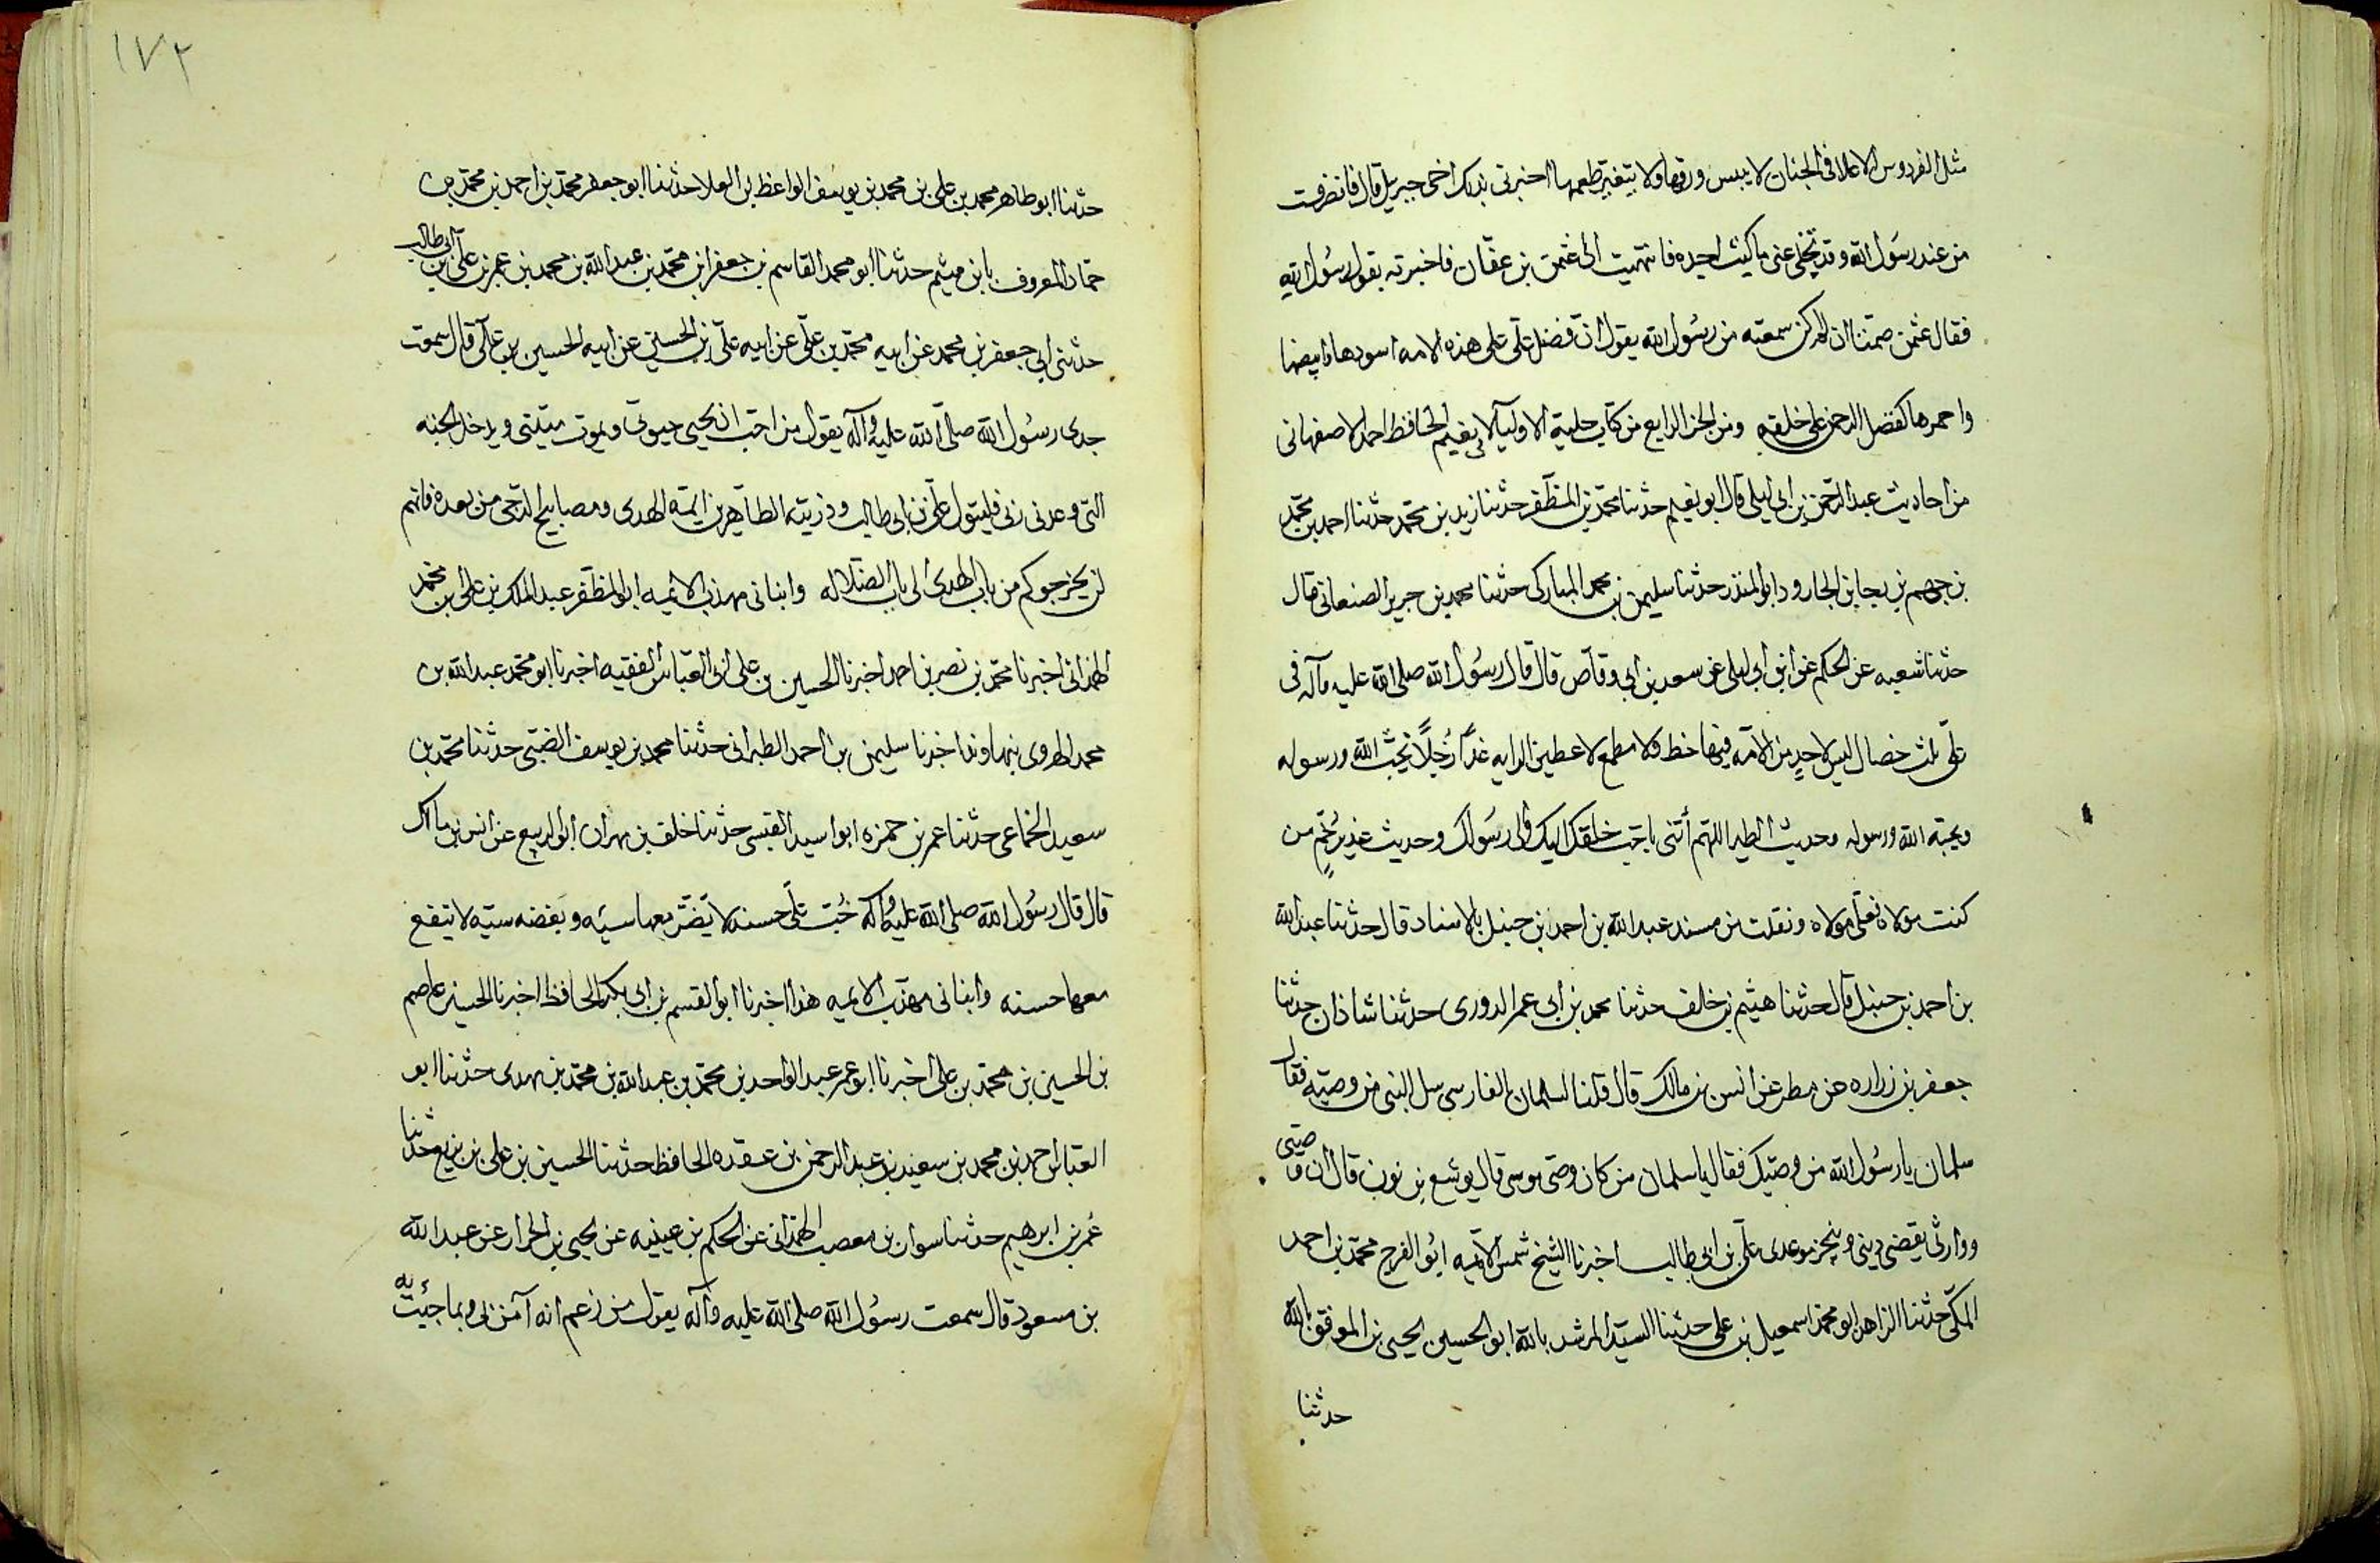 مثل الفردوس الاعلا فى الجنان لا ييبس ورقها ولا يتغير طعمها اخبرنى بذلك اخى جبريل قال فانصرفت
من عند رسول الله وقد تجلى عنى ما كنت اجده فانتهيت الى عثمن بن عفان فاخبرته بقول رسول الله
فقال عثمن صمتا ان لم اكن سمعته من رسول الله يقول ان فضل على على هذه الامه اسودها وابيضها
واحمرها كفضل الرحمن على خلقه ومن الجز الرابع من كتاب حلية الاوليآ لابى نعيم الحافظ احمد الاصفهانى
من احاديث عبد الرحمن بن ابى ليلى قال ابو نعيم حدثنا محمد بن المظفر حدثنا زيد بن محمد حدثنا احمد بن محمد
بن جهم بن الجارود ابو المنذر حدثنا سليمن بن محمد المباركى حدثنا محمد بن جرير الصنعانى قال
حدثنا شعبه عن الحكم عن ابن ابى ليلى عن سعد بن ابى وقاص قال قال رسول الله صلى الله عليه وآله فى
على ثلث خصال ليس لاحد من الامه فيها حظ ولا مطمع لاعطين الرايه غدا رجلا يحب الله ورسوله
ويحبه الله ورسوله وحديث الطير اللهم أتنى باحب خلقك اليك والى رسولك وحديث غدير خم من
كنت مولاه فعلى مولاه ونقلت من مسند عبد الله بن احمد ابن حنبل بالاسناد قال حدثنا عبد الله
بن احمد بن حنبل قال حدثنا هيثم بن خلف حدثنا محمد بن ابى عمر الدورى حدثنا شاذان حدثنا
جعفر بن زراره عن مطر عن انس بن مالك قال قلنا لسلمان الفارسى سل النبى من وصيه فقال
سلمان يا رسول الله من وصيك فقال يا سلمان من كان وصى موسى قال يوشع بن نون قال ان وصيى
ووارثى يقضى دينى وينجز موعدى على بن ابى طالب اخبرنا الشيخ شمس الآئمه ابو الفرج محمد بن احمد
المكى حدثنا الزاهد ابو محمد اسمعيل بن على حدثنا السيد المرشد بالله ابو الحسين يحيى بن الموفق بالله
حدثنا
١٧٢
حدثنا ابو طاهر محمد بن على بن محمد بن يوسف الواعظ بن العلا حدثنا ابو جعفر محمد بن احمد بن محمد بن
حماد المعروف بابن ميثم حدثنا ابو محمد القاسم بن جعفر ابن محمد بن عبد الله بن محمد بن عمر بن على بن ابى طالب
حدثنى ابى جعفر بن محمد عن ابيه محمد بن على عن ابيه على بن الحسين عن ابيه الحسين بن على قال سمعت
جدى رسول الله صلى الله عليه وآله يقول من احب ان يحيى حيوتى ويموت ميتتى ويدخل الجنه
التى وعدنى ربى فليتول على بن ابى طالب وذريته الطاهرين ائمة الهدى ومصابيح الدجى من بعده فانهم
لن يخرجوكم من باب الهدى الى باب الضلاله وانبانى مهذب الائمه ابو المظفر عبد الملك بن على بن محمد
الهمدانى اخبرنا محمد بن نصر بن احمد اخبرنا الحسين بن على ابى العباس الفقيه اخبرنا ابو محمد عبد الله بن
محمد الهروى بنهاوند اخبرنا سليمن بن احمد الطبرانى حدثنا محمد بن يوسف الضبى حدثنا محمد بن
سعيد الخماعى حدثنا عمر بن حمزه ابو اسيد القيسى حدثنا خلف بن مهران ابو الربيع عن انس بن مالك
قال قال رسول الله صلى الله عليه وآله حب على حسنه لا تضر معها سيئه وبغضه سيه لا تنفع
معها حسنه وانبانى مهذب الايمه هذا اخبرنا ابو القسم بن ابى بكر الحافظ اخبرنا الحسين عاصم
بن الحسين بن محمد بن على اخبرنا ابو عمر عبد الواحد بن محمد بن عبد الله بن محمد بن مهدى حدثنا ابو
العباس احمد بن محمد بن سعيد بن عبد الرحمن بن عقده الحافظ حدثنا الحسين بن على بن بزيع حدثنا
عمر بن ابرهيم حدثنا سوار بن مصعب الهمدانى عن الحكم بن عيينه عن يحيى بن الجزار عن عبد الله
بن مسعود قال سمعت رسول الله صلى الله عليه وآله يقول من زعم انه آمن بى وبما جئت به